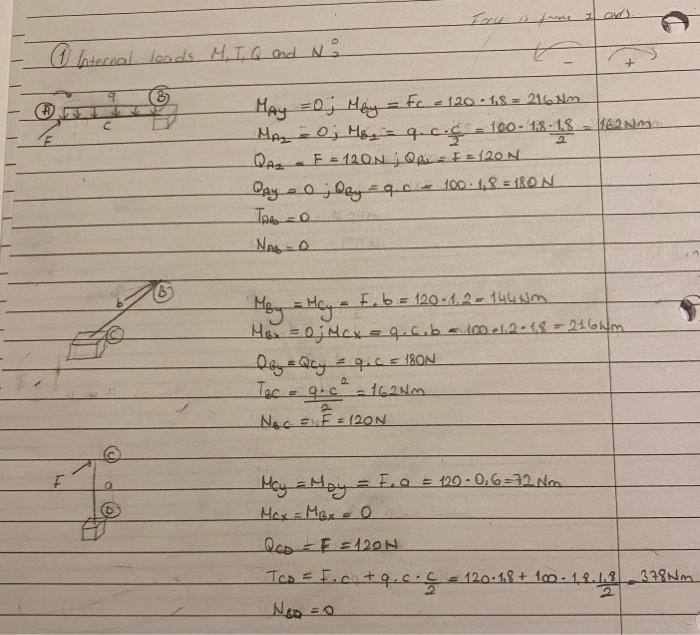 Force is from z axis.
① Internal loads M, T, Q and N:
- +
A q B
F c
M_Ay = 0; M_By = Fc = 120 · 1,8 = 216 Nm
M_Az = 0; M_Bz = q · c · c/2 = 100 · 1,8 · 1,8/2 = 162 Nm
Q_Az = F = 120N; Q_Bz = F = 120N
Q_Ay = 0; Q_By = q · c = 100 · 1,8 = 180N
T_AB = 0
N_AB = 0
b B
C
M_By = M_Cy = F · b = 120 · 1,2 = 144 Nm
M_Bx = 0; M_Cx = q · c · b = 100 · 1,2 · 1,8 = 216 Nm
Q_By = Q_Cy = q · c = 180N
T_BC = q · c²/2 = 162 Nm
N_BC = F = 120N
C
F a
D
M_Cy = M_Dy = F · a = 120 · 0,6 = 72 Nm
M_Cx = M_Bx = 0
Q_CD = F = 120N
T_CD = F · c + q · c · c/2 = 120 · 1,8 + 100 · 1,8 · 1,8/2 = 378 Nm
N_CD = 0